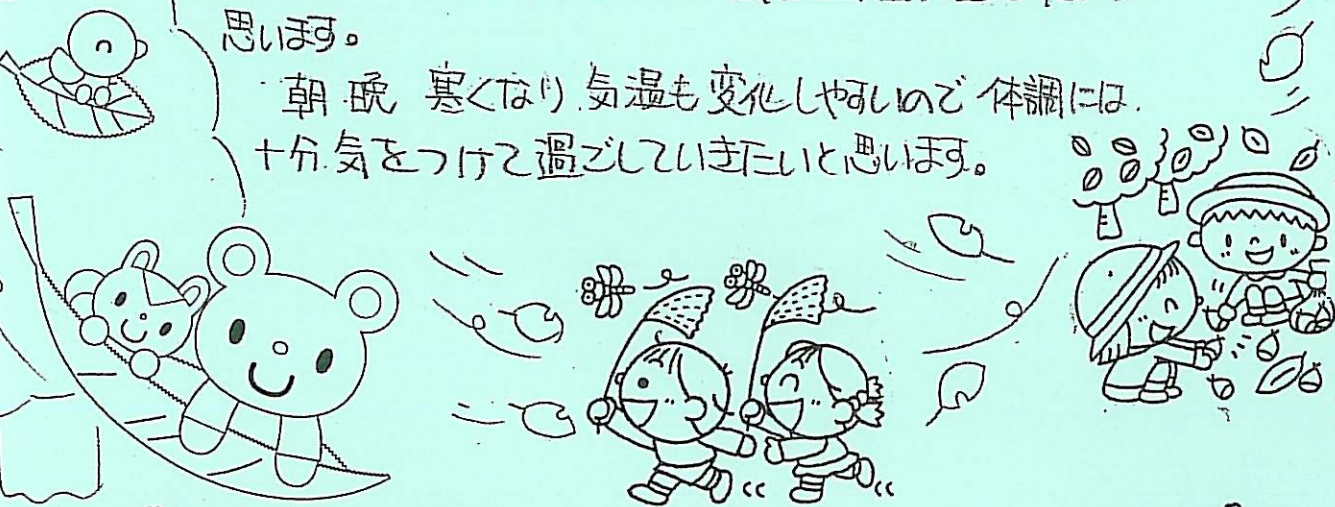 思います。
朝晩 寒くなり、気温も変化しやすいので 体調には、
十分、気をつけて過ごしていきたいと思います。